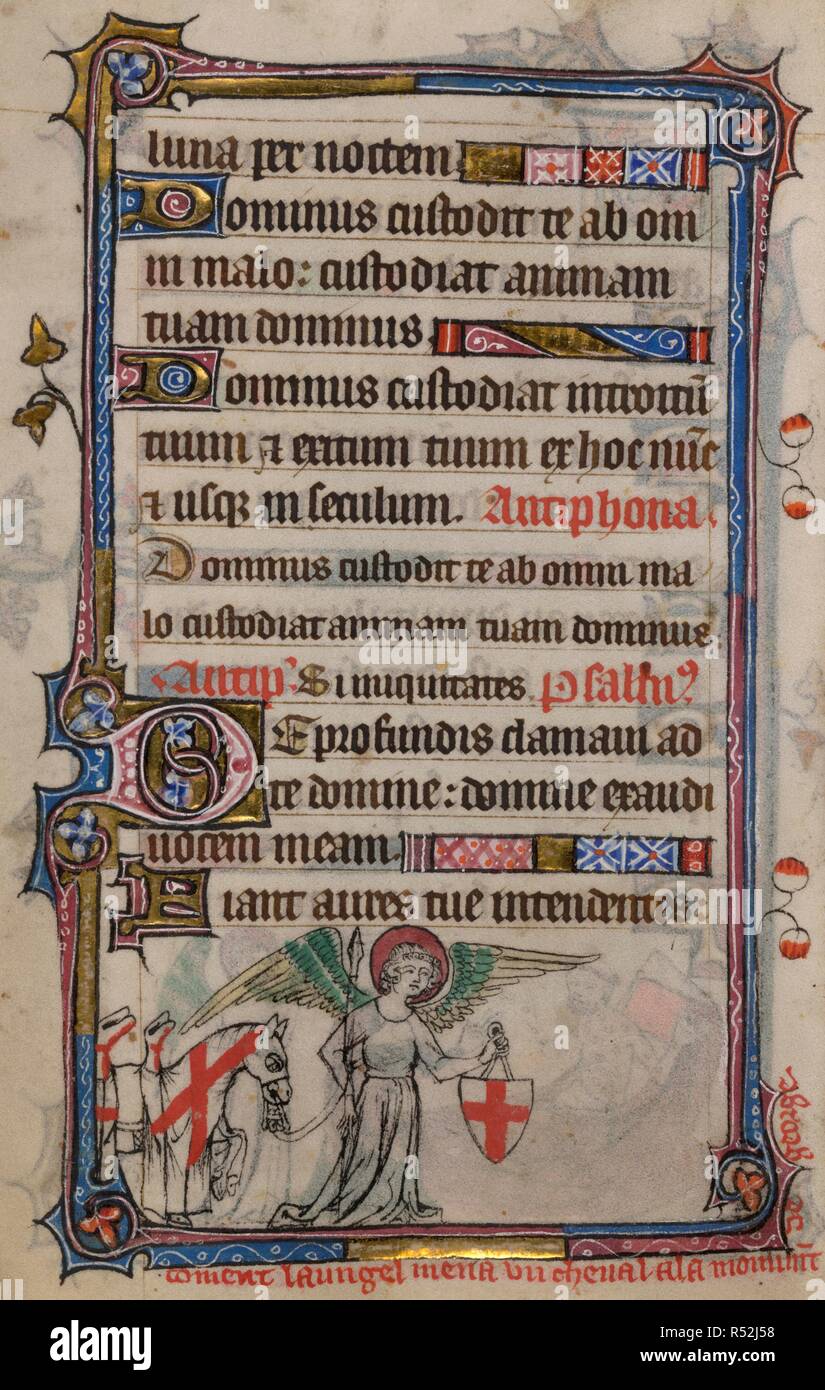 luna per noctem
Dominus custodit te ab om
ni malo: custodiat animam
tuam dominus
Dominus custodiat introitū
tuum et exitum tuum ex hoc nūc
et usq; in seculum. Antiphona
Dominus custodit te ab omni ma
lo custodiat animam tuam dominus
Antip' Si iniquitates Psalmꝰ
DE profundis clamaui ad
te domine: domine exaudi
uocem meam.
Fiant aures tue intendentes
coment laungel mena vn cheual a la
george
alamy
Image ID: R52J58
www.alamy.com